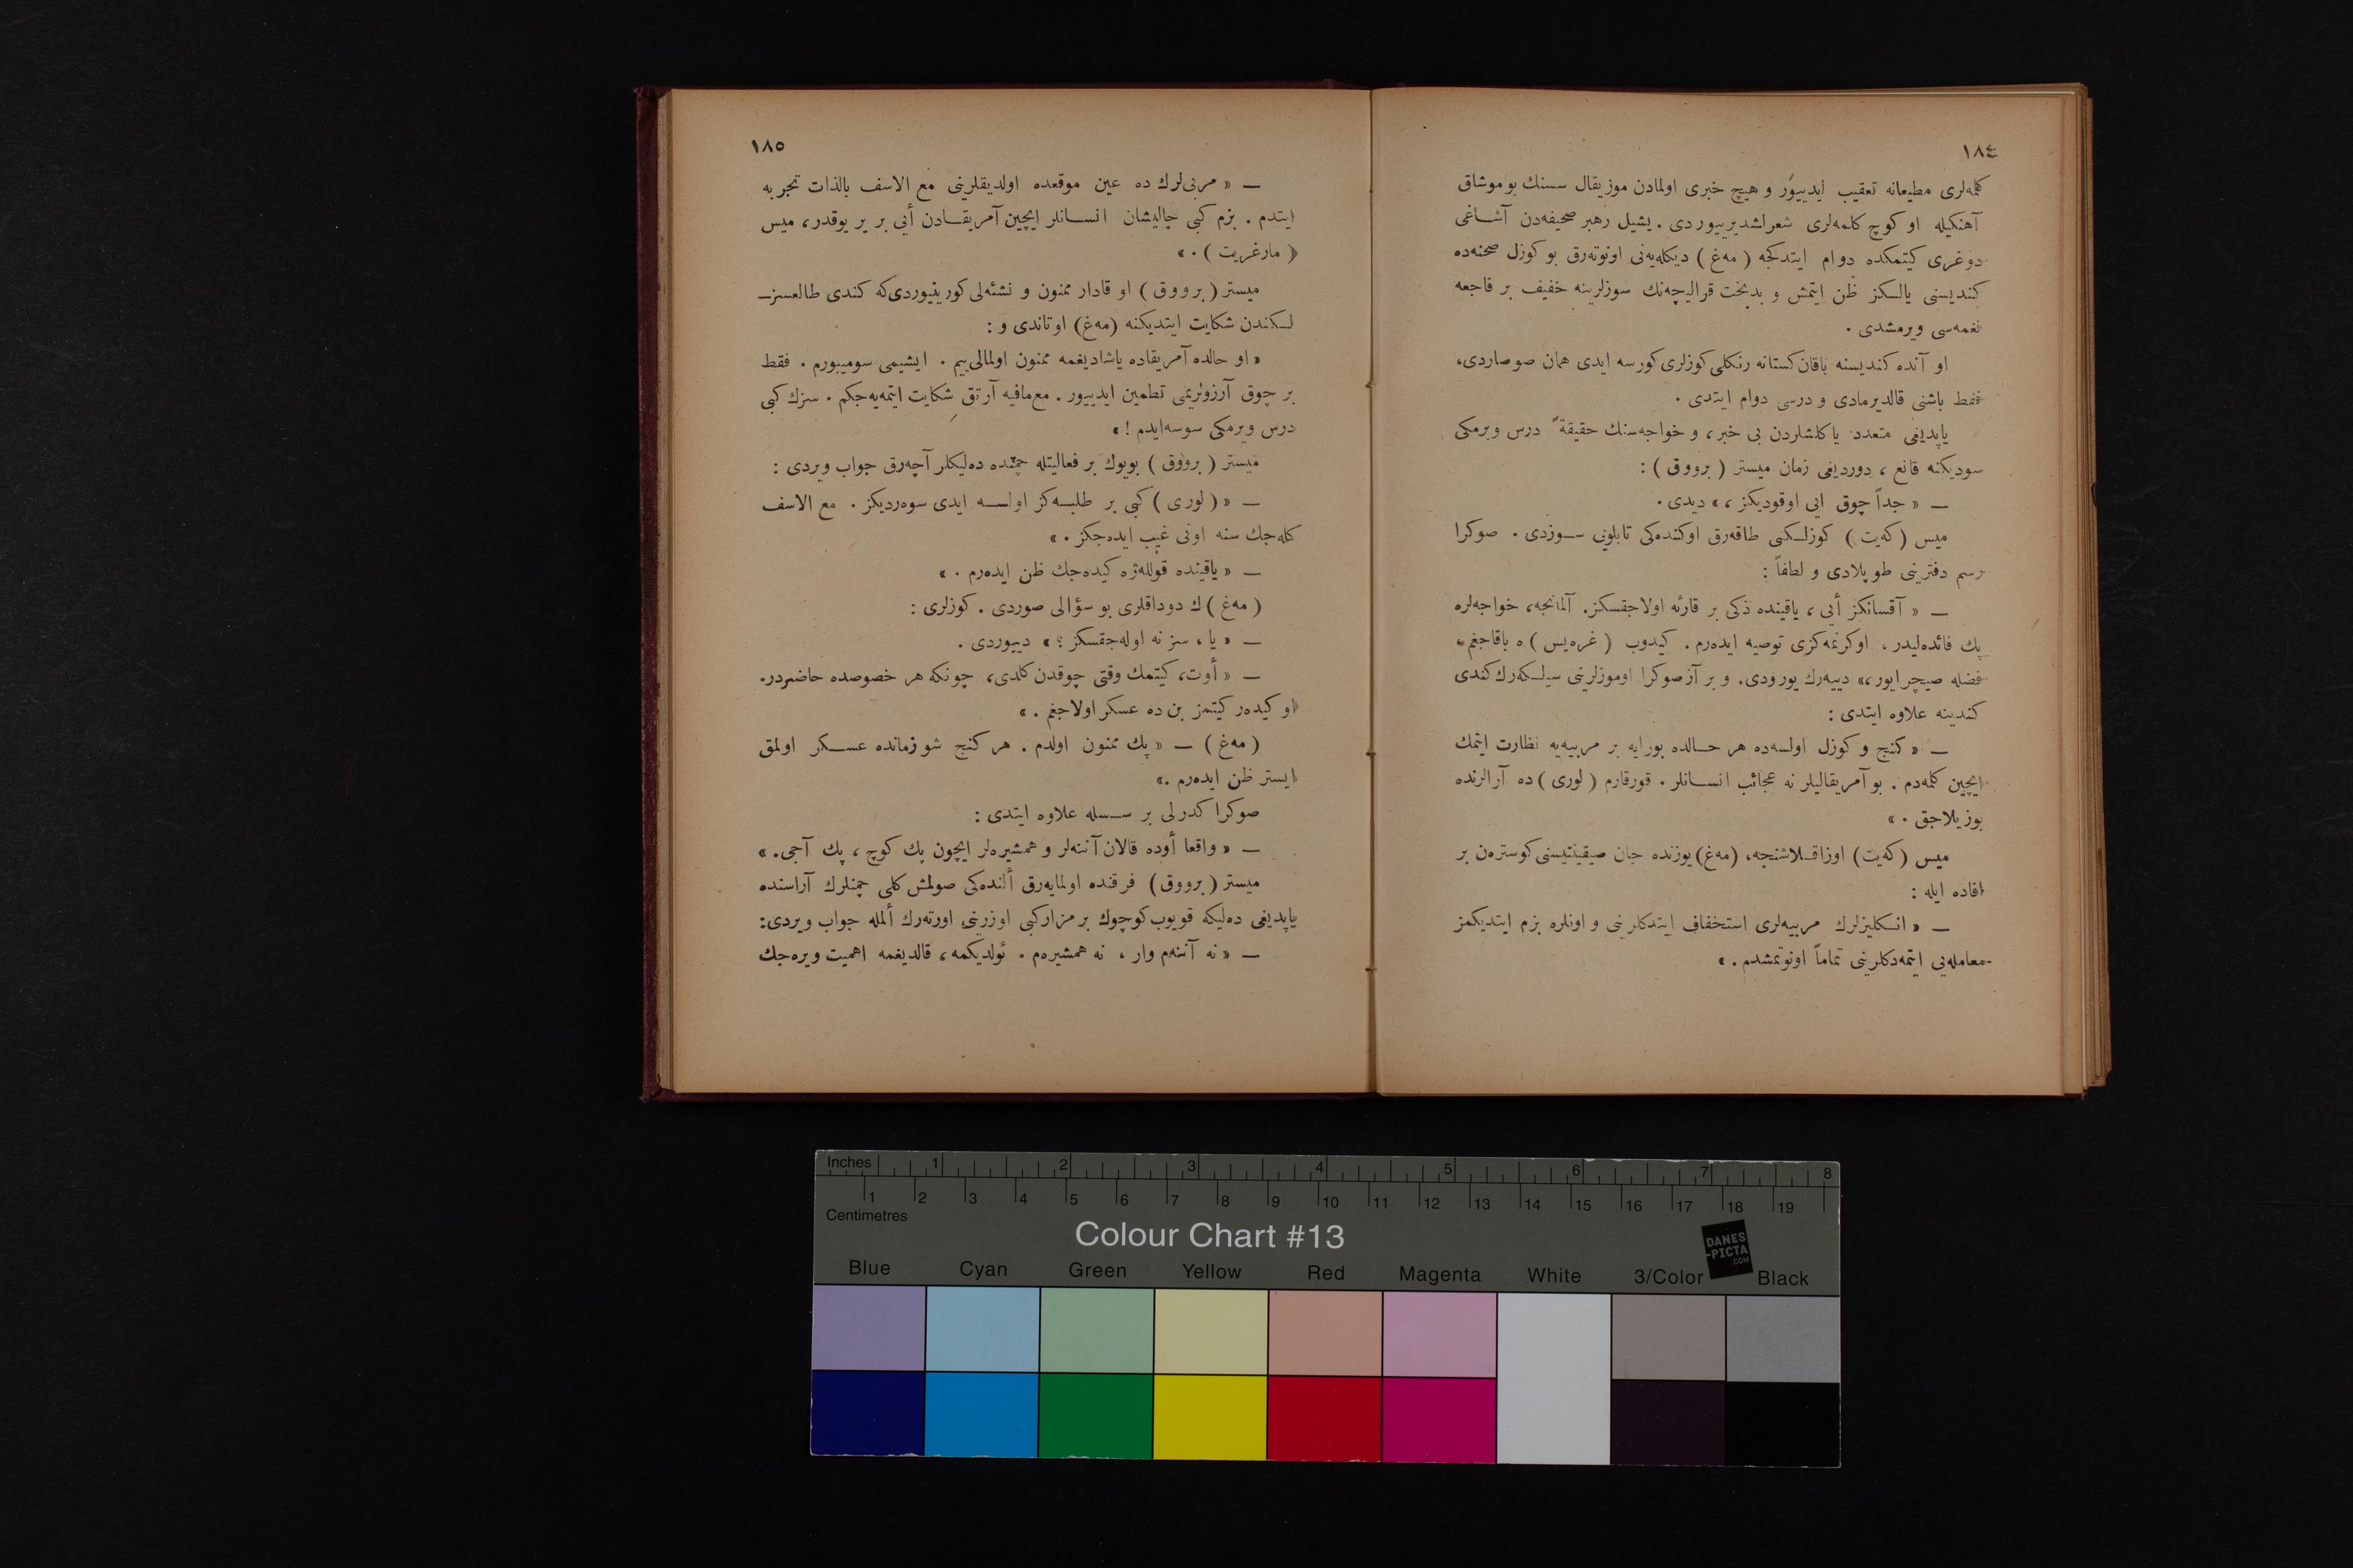 ١٨٤
كلمه‌لرى مطيعانه تعقيب ايدييور و هيچ خبرى اولمادن موزيقال سسنك بوموشاق
آهنكيله او كوچ كلمه‌لرى شعرلشديرييوردى . يشيل رهبر صحيفه‌دن آشاغى
دوغرى كيتمكده دوام ايتدكجه ( مه‌غ ) ديكله‌يه‌نى اونوته‌رق بو كوزل صحنه‌ده
كنديسنى يالكز ظن ايتمش و بدبخت قراليچه‌نك سوزلرينه خفيف بر فاجعه
نغمه‌سى ويرمشدى .
او آنده كنديسنه باقان كستانه رنكلى كوزلرى كورسه ايدى همان صوصاردى،
فقط باشنى قالديرمادى و درسى دوام ايتدى .
ياپديغى متعدد ياكلشلردن بى خبر، و خواجه‌سنك حقيقةً درس ويرمكى
سوديكنه قانع ، دورديغى زمان ميستر ( برووق ) :
— « جداً چوق ايى اوقوديكز ، » ديدى .
ميس ( كه‌يت ) كوزلكى طاقه‌رق اوكنده‌كى تابلويى سوزدى . صوكرا
رسم دفترينى طوپلادى و لطفاً :
— « آقسانكز أيى ، ياقينده ذكى بر قارئه اولاجقسكز. آلمانجه، خواجه‌لره
پك فائده‌ليدر ، اوكرنمه‌كزى توصيه ايده‌رم . كيدوب ( غره‌يس ) ه باقاجغم ،
فضله صيچرايور ،» دييه‌رك يورودى. و بر آز صوكرا اوموزلرينى سيلكه‌رك كندى
كندينه علاوه ايتدى :
— « كنج و كوزل اولسه‌ده هر حالده بورايه بر مربيه‌يه نظارت ايتمك
ايچين كلمه‌دم . بو آمريقاليلر نه عجائب انسانلر . قورقارم ( لورى ) ده آرالرنده
بوزيلاجق . »
ميس (كه‌يت) اوزاقلاشنجه، (مه‌غ) يوزنده جان صيقينتيسنى كوستره‌ن بر
افاده ايله :
— « انكليزلرك مربيه‌لرى استخفاف ايتدكلرينى و اونلره بزم ايتديكمز
معامله‌يى ايتمه‌دكلرينى تماماً اونوتمشدم . »
١٨٥
— « مربى‌لرك ده عين موقعده اولديقلرينى مع الاسف بالذات تجربه
ايتدم . بزم كبى چاليشان انسانلر ايچين آمريقادن أيى بر ير يوقدر، ميس
( مارغريت ) . »
ميستر ( برووق ) او قادار ممنون و نشئه‌لى كورينيوردى‌كه كندى طالعسز-
لكندن شكايت ايتديكنه (مه‌غ) اوتاندى و :
« او حالده آمريقاده ياشاديغمه ممنون اولمالى‌ييم . ايشيمى سوميبورم . فقط
بر چوق آرزولريمى تطمين ايدييور . مع‌مافيه آرتق شكايت ايتمه‌يه‌جكم . سزك كبى
درس ويرمكى سوسه‌ايدم ! »
ميستر ( برووق ) بويوك بر فعاليتله چمنده ده‌ليكلر آچه‌رق جواب ويردى :
— « ( لورى ) كبى بر طلبه‌كز اولسه ايدى سوه‌رديكز . مع الاسف
كله‌جك سنه اونى غيب ايده‌جكز . »
— « ياقينده قوللـه‌ژه كيده‌جك ظن ايده‌رم . »
(مه‌غ ) ك دوداقلرى بو سؤالى صوردى . كوزلرى :
— « يا ، سز نه اوله‌جقسكز ؟ » دييوردى .
— « أوت، كيتمك وقتى چوقدن كلدى، چونكه هر خصوصده حاضردر.
او كيده‌ر كيتمز بن ده عسكر اولاجغم . »
(مه‌غ ) — « پك ممنون اولدم . هر كنج شو زمانده عسكر اولمق
ايستر ظن ايده‌رم .»
صوكرا كدرلى بر سسله علاوه ايتدى :
— « واقعا أوده قالان آننه‌لر و همشيره‌لر ايچون پك كوچ ، پك آجى. »
ميستر (برووق) فرقنده اولمايه‌رق ألنده‌كى صولمش كلى چمنلرك آراسنده
ياپديغى ده‌ليكه قويوب كوچوك بر مزار كبى اوزرينى اورته‌رك ألمله جواب ويردى:
— « نه آننه‌م وار ، نه همشيره‌م . ئولديكمه ، قالديغمه اهميت ويره‌جك
Inches 1 2 3 4 5 6 7 8
1 2 3 4 5 6 7 8 9 10 11 12 13 14 15 16 17 18 19
Centimetres
Colour Chart #13
DANES
-PICTA
.COM
Blue Cyan Green Yellow Red Magenta White 3/Color Black